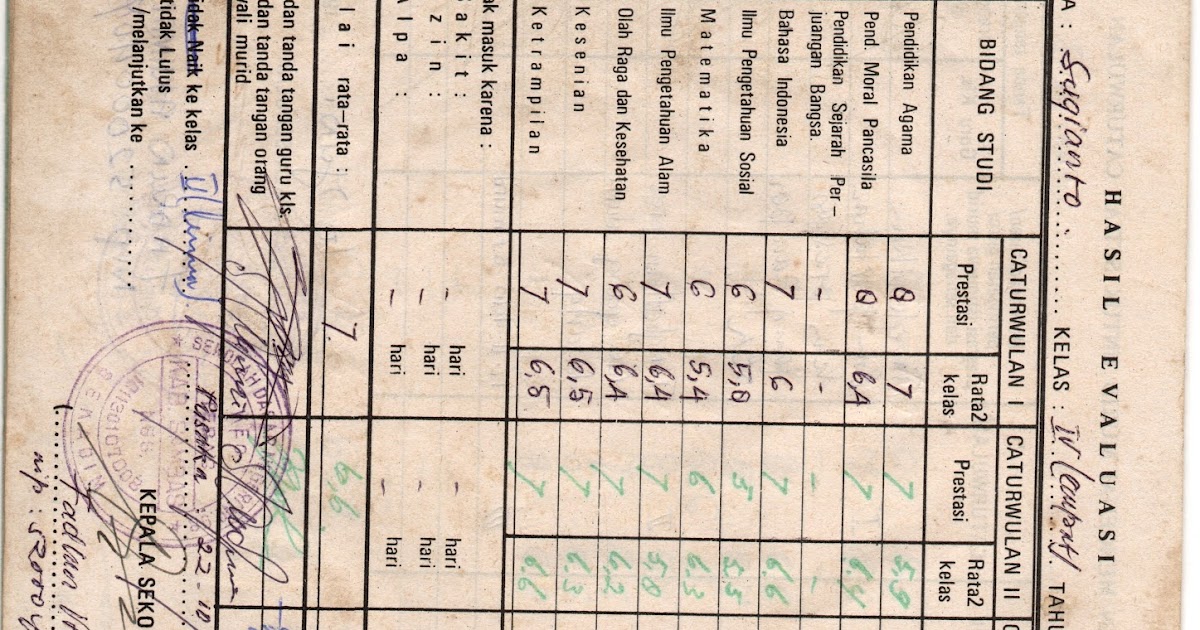 HASIL EVALUASI
A : Sugianto KELAS : IV (empat) TAHU
BIDANG STUDI CATURWULAN I CATURWULAN II
Prestasi Rata2 kelas Prestasi Rata2 kelas
Pendidikan Agama 8 7 7 5,9
Pend. Moral Pancasila 8 6,4 7 6,4
Pendidikan Sejarah Per–
juangan Bangsa. - - - -
Bahasa Indonesia 7 6 7 6,6
Ilmu Pengetahuan Sosial 6 5,8 5 5,5
Matematika 6 5,4 6 6,3
Ilmu Pengetahuan Alam 7 6,4 7 5,8
Olah Raga dan Kesehatan 6 6,4 7 6,2
Kesenian 7 6,5 7 6,3
Ketrampilan 7 6,8 7 6,6
ak masuk karena :
Sakit : – hari – hari
zin : – hari – hari
lpa : – hari – hari
lai rata–rata : 7. 6,6.
dan tanda tangan guru kls.
dan tanda tangan orang
ali murid
idak Naik ke kelas
tidak Lulus
/melanjutkan ke
22-10
KEPALA SEKO
nip :